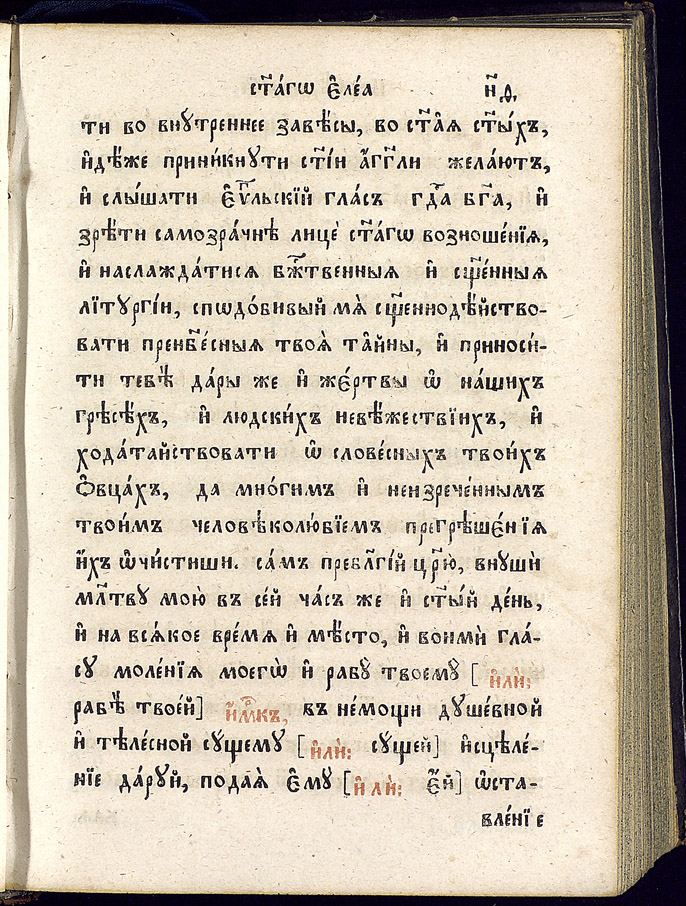 ст҃а́гѡ є҆ле́а н҃д,
ти во внꙋтреннее завѣ́сы, во ст҃а̑ѧ ст҃ы́хъ,
и҆дѣ́же прини́кнꙋти ст҃і́и а҆́гг҃ли жела́ютъ,
и҆ слы́шати є҆ѵⷢ҇льскїй гла́съ гдⷭ҇а бг҃а, и҆
зрѣ́ти самозра́чнѣ лицѐ ст҃а́гѡ возноше́нїѧ,
и҆ наслажда́тисѧ бжⷭ҇твенныѧ и҆ сщ҃е́нныѧ
лїтꙋргі́и, сподо́бивый мѧ̀ сщ҃еннодѣ́йство-
вати пренбⷭ҇е́сныѧ твоѧ̑ та̑йны, и҆ приноси́-
ти тебѣ̀ да́ры же и҆ же́ртвы ѡ҆ на́шихъ
грѣсѣ́хъ, и҆ людски́хъ невѣ́жествїихъ, и҆
хода́тайствовати ѡ҆ слове́сныхъ твои́хъ
ѻ҆вца́хъ, да мно́гимъ и҆ неизрече́ннымъ
твои́мъ человѣколю́бїемъ прегрѣшє́нїѧ
и҆́хъ ѡ҆чи́стиши. са́мъ пребл҃гі́й цр҃ю̀, внꙋшѝ
мл҃твꙋ мою̀ въ се́й ча́съ же и҆ ст҃ы́й де́нь,
и҆ на всѧ́кое вре́мѧ и҆ мѣ́сто, и҆ вонмѝ гла́-
сꙋ моле́нїѧ моегѡ̀ и҆ рабꙋ̀ твоемꙋ̀ [и҆лѝ:
рабѣ̀ твое́й] и҆́м҃къ, въ не́мощи дꙋше́вной
и҆ тѣле́сной сꙋ́щемꙋ [и҆лѝ: сꙋ́щей] и҆сцѣле́-
нїе да́рꙋй, подаѧ̀ є҆мꙋ̀ [и҆лѝ: є҆́й] ѡ҆ста-
вле́нїе